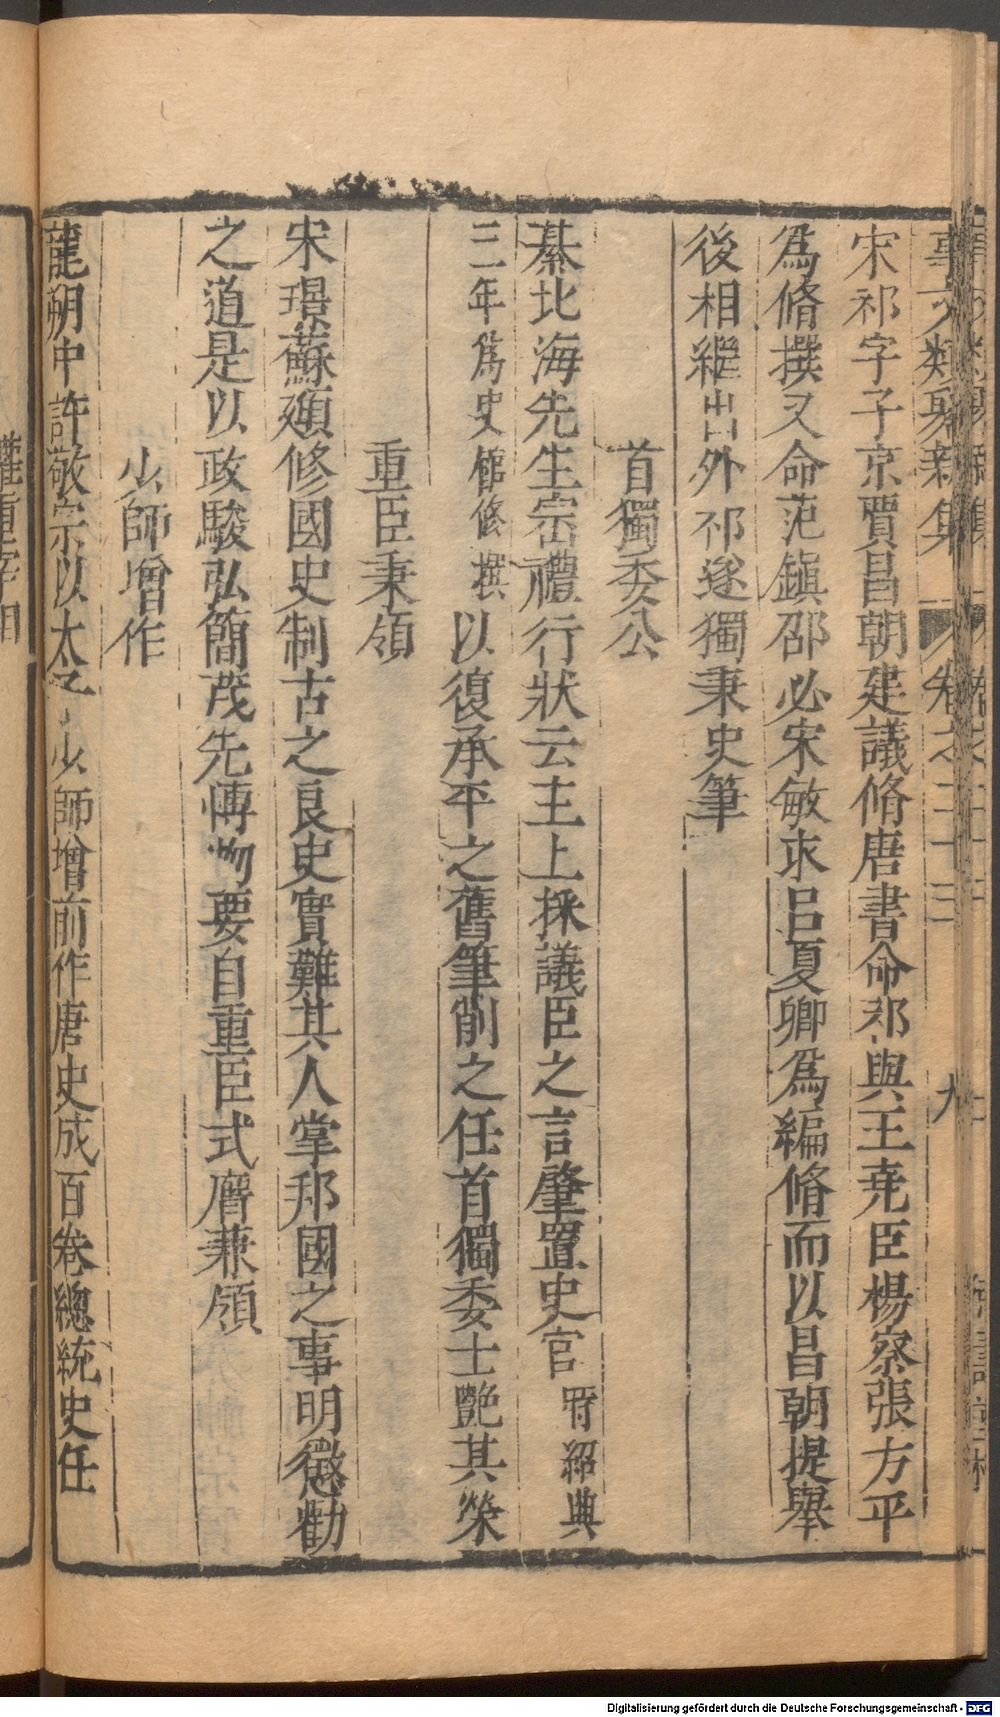 事文類聚新集 卷之二十三 九
宋祁字子京賈昌朝建議脩唐書命祁與王堯臣楊察張方平
爲脩撰又命范鎭邵必宋敏求呂夏卿爲編脩而以昌朝提舉
後相繼出外祁遂獨秉史筆
首獨委公
綦北海先生宗禮行狀云主上採議臣之言肇置史官時紹興
三年爲史館修撰以復承平之舊筆削之任首獨委士艷其榮
重臣秉領
宋璟蘇頲修國史制古之良史實難其人掌邦國之事明懲勸
之道是以政駿弘簡茂先博物要自重臣式膺兼領
少師增作
龍朔中許敬宗以太子少師增前作唐史成百卷總統史任
Digitalisierung gefördert durch die Deutsche Forschungsgemeinschaft - DFG